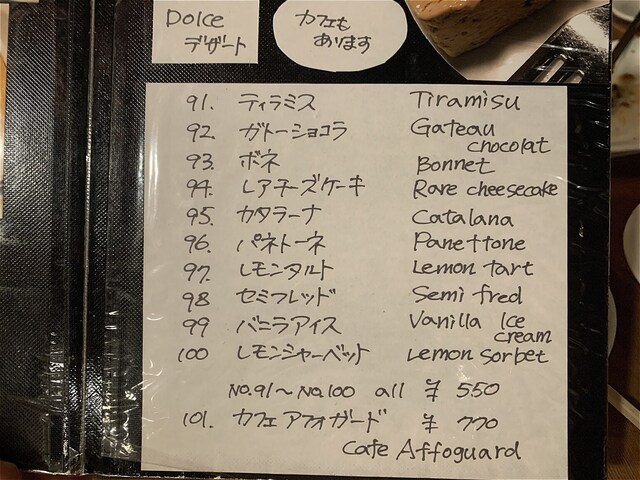 Dolce
デザート
カフェも
あります
91. ティラミス Tiramisu
92. ガトーショコラ Gateau
chocolat
93. ボネ Bonnet
94. レアチーズケーキ Rare cheesecake
95. カタラーナ Catalana
96. パネトーネ Panettone
97. レモンタルト Lemon tart
98 セミフレッド Semi fred
99 バニラアイス Vanilla Ice
cream
100 レモンシャーベット Lemon Sorbet
No.91～No.100 all ¥ 550
101. カフェアフォガード ¥ 770
Cafe Affoguard